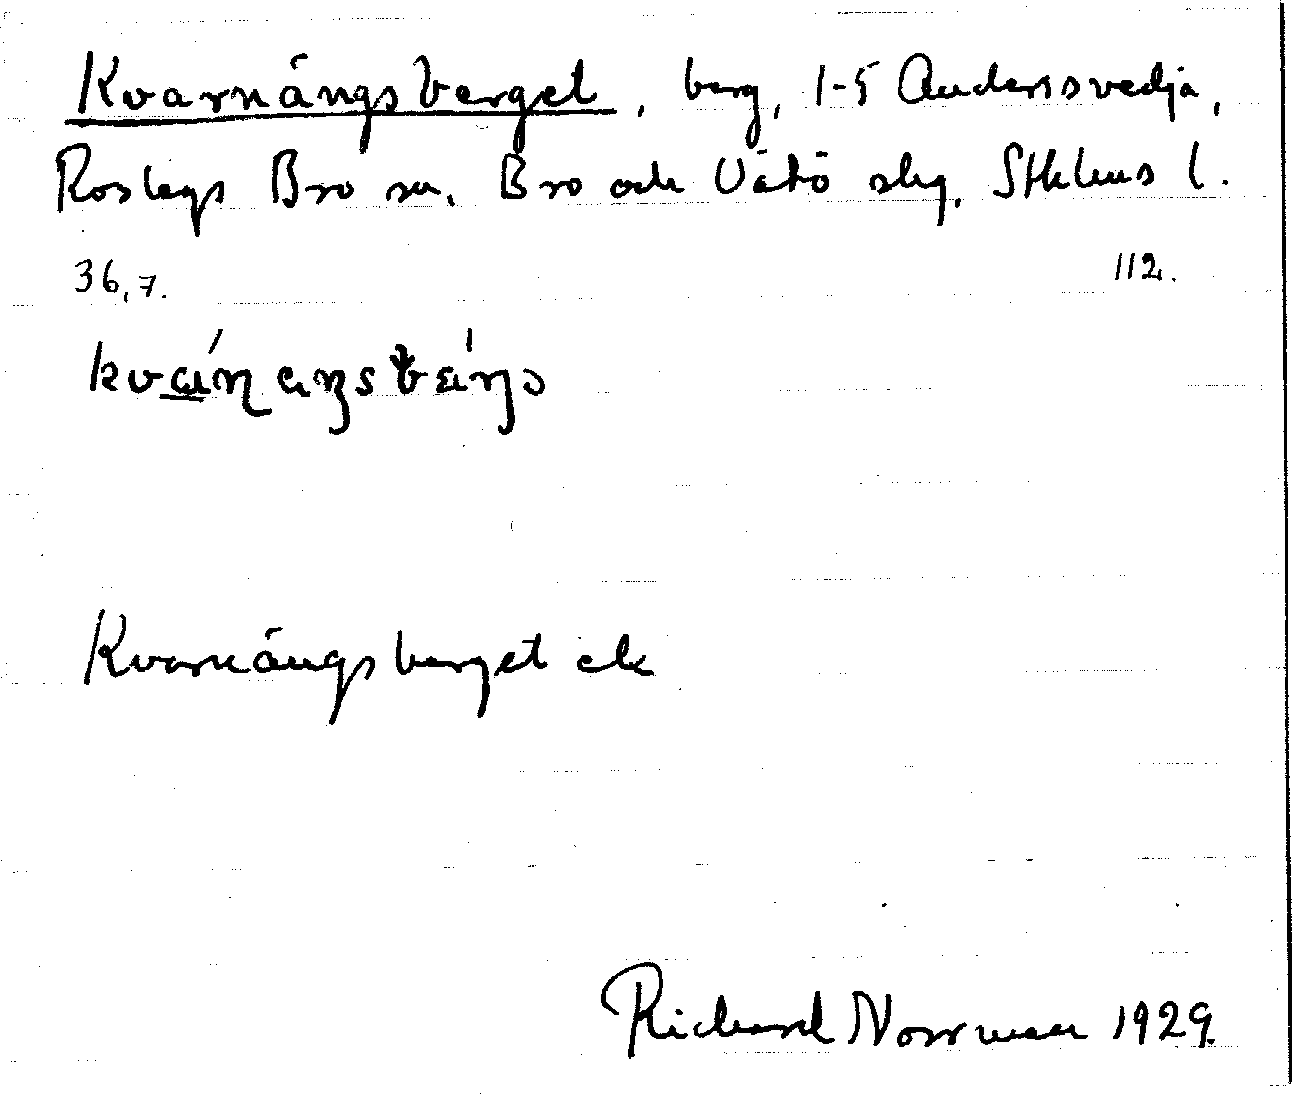 Kvarnängsberget, berg, 1-5 Andersvedja,
Roslags Bro sn. Bro och Vätö slg. Sthlms l.
36,7. 112.
Kvarnängsberget ek
Richard Norrman 1929.